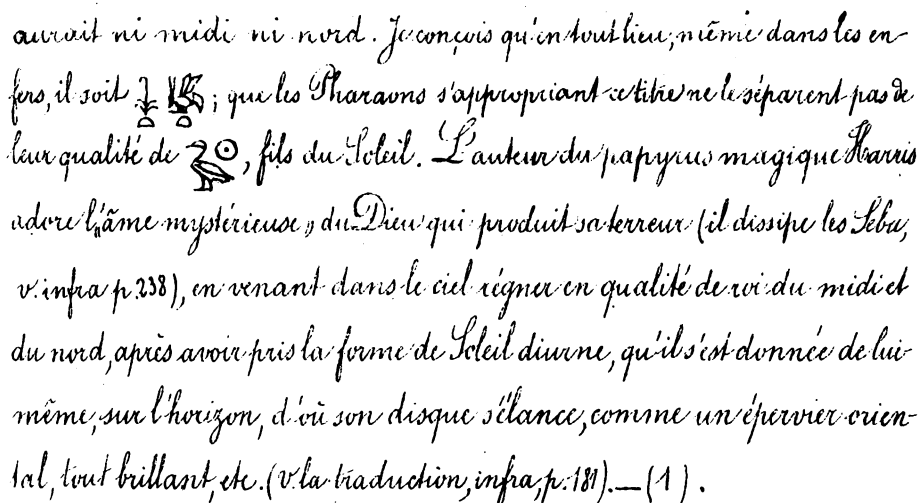 aurait ni midi ni nord. Je conçois qu'en tout lieu, même dans les en-
fers, il soit 𓇓𓏏 𓆤𓏏; que les Pharaons s'appropriant ce titre ne le séparent pas de
leur qualité de 𓅭𓇳, fils du Soleil. L'auteur du papyrus magique Harris
adore l'„âme mystérieuse„ du Dieu qui produit sa terreur (il dissipe les Seba,
v. infra p. 238), en venant dans le ciel régner en qualité de roi du midi et
du nord, après avoir pris la forme de Soleil diurne, qu'il s'est donnée de lui-
même, sur l'horizon, d'où son disque s'élance, comme un épervier orien-
tal, tout brillant, etc. (v. la traduction, infra, p. 181). — (1).